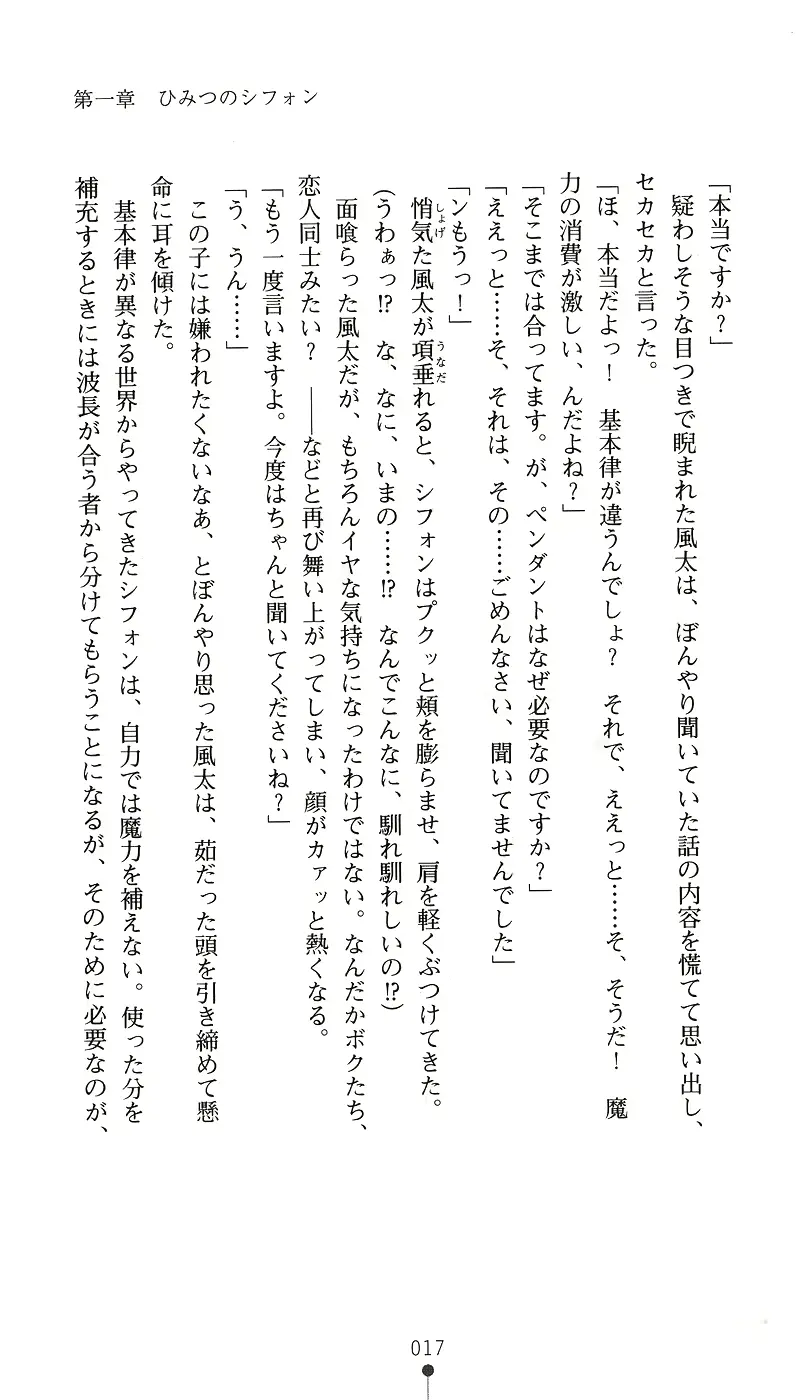 第一章　ひみつのシフォン
「本当ですか？」
　疑わしそうな目つきで睨まれた風太は、ぼんやり聞いていた話の内容を慌てて思い出し、
セカセカと言った。
「ほ、本当だよっ！　基本律が違うんでしょ？　それで、ええっと……そ、そうだ！　魔
力の消費が激しい、んだよね？」
「そこまでは合ってます。が、ペンダントはなぜ必要なのですか？」
「ええっと……そ、それは、その……ごめんなさい、聞いてませんでした」
「ンもうっ！」
　悄気（しょげ）た風太が項垂（うなだ）れると、シフォンはプクッと頬を膨らませ、肩を軽くぶつけてきた。
（うわぁっ!?　な、なに、いまの……!?　なんでこんなに、馴れ馴れしいの!?）
　面喰らった風太だが、もちろんイヤな気持ちになったわけではない。なんだかボクたち、
恋人同士みたい？　――などと再び舞い上がってしまい、顔がカァッと熱くなる。
「もう一度言いますよ。今度はちゃんと聞いてくださいね？」
「う、うん……」
　この子には嫌われたくないなあ、とぼんやり思った風太は、茹だった頭を引き締めて懸
命に耳を傾けた。
　基本律が異なる世界からやってきたシフォンは、自力では魔力を補えない。使った分を
補充するときには波長が合う者から分けてもらうことになるが、そのために必要なのが、
017